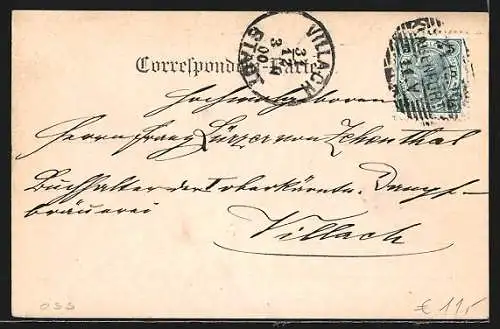 Correspondenz-Karte
VILLACH
31
12
00
3 N
STADT
Hochwohlgeboren
Herrn Franz Kürzer von Zehenthal
Buchhalter der I. oberkärntn. Dampf-
bräuerei
Villach
055
€ 115